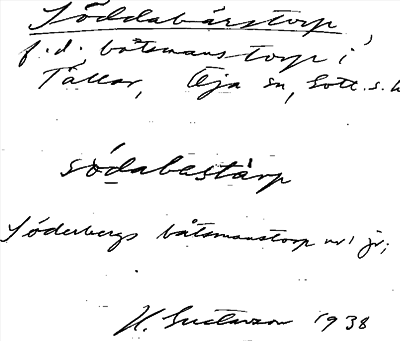 Söddabårstorp,
f.d. båtsmanstorp i
Tällar, Öja sn, Sotl. s.k
södabastårp
Söderbergs båtsmanstorp nr 1 jr;
H. Gustavson 1938